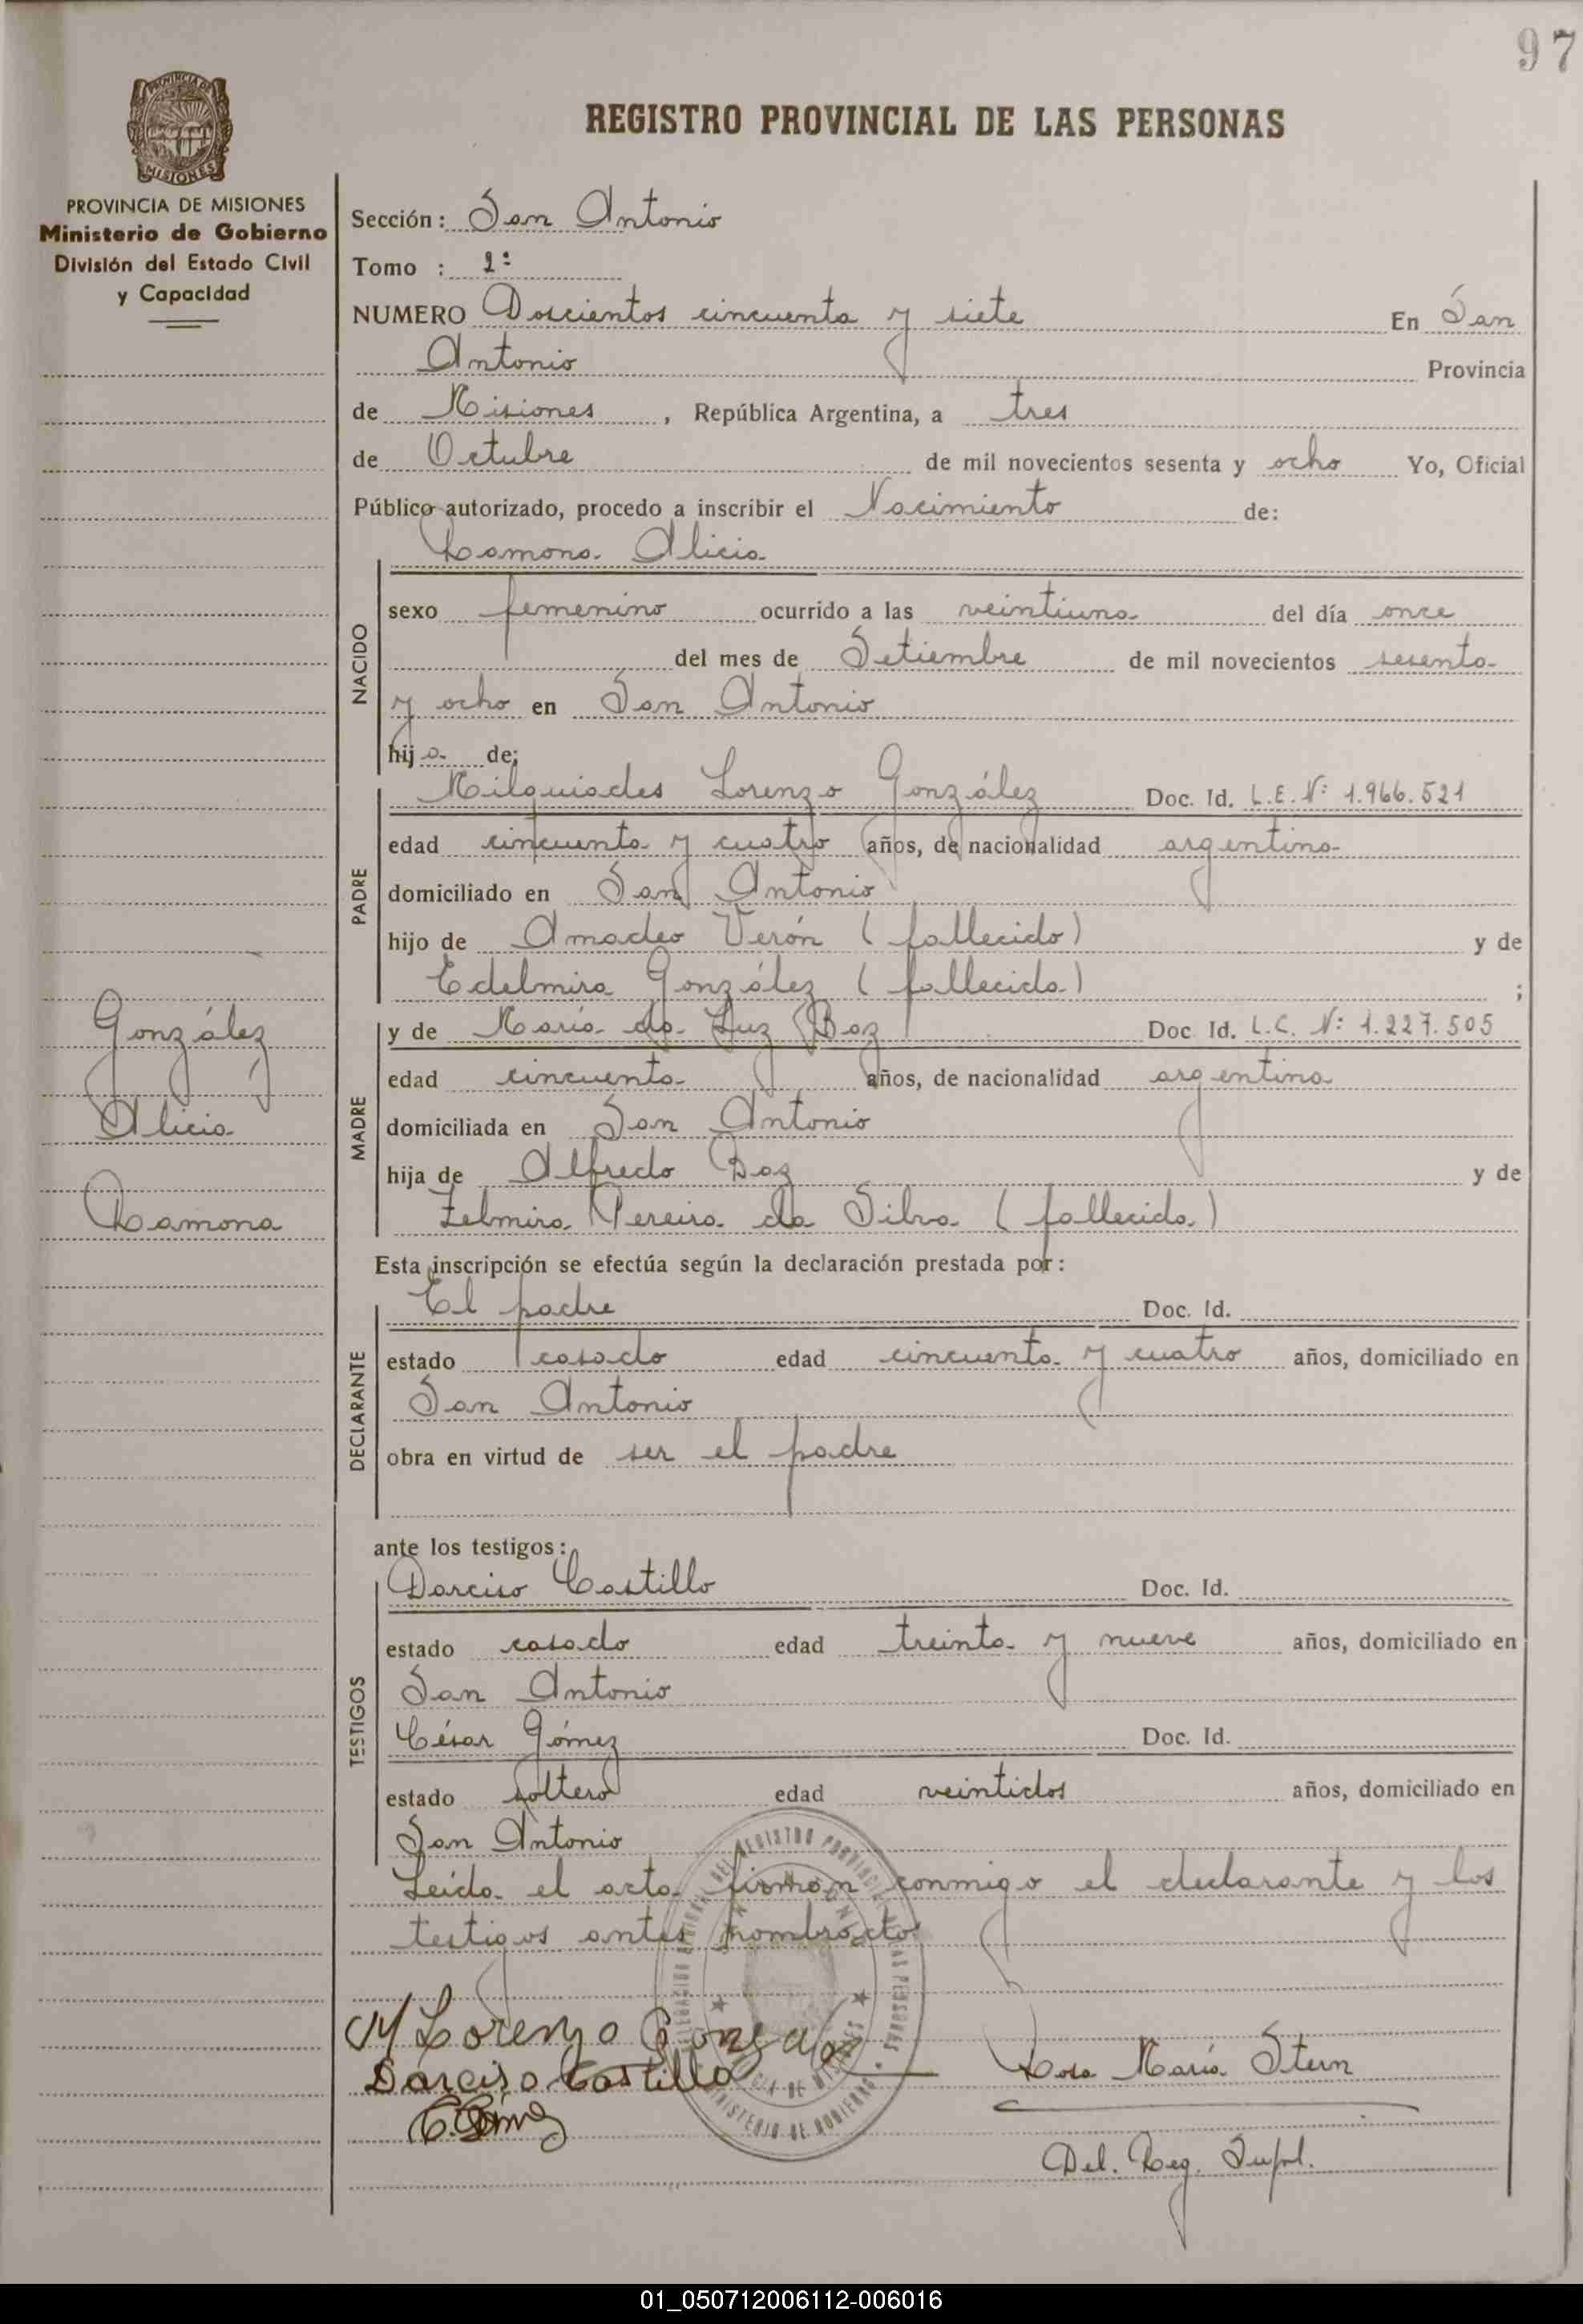 97
REGISTRO PROVINCIAL DE LAS PERSONAS
PROVINCIA DE MISIONES
MISIONES
PROVINCIA DE MISIONES
Ministerio de Gobierno
División del Estado Civil
y Capacidad
Sección: San Antonio
Tomo : 2º
NUMERO Doscientos cincuenta y siete En San
Antonio Provincia
de Misiones, República Argentina, a tres
de Octubre de mil novecientos sesenta y ocho Yo, Oficial
Público autorizado, procedo a inscribir el Nacimiento de:
Ramona Alicia
NACIDO
sexo femenino ocurrido a las veintiuna del día once
del mes de Setiembre de mil novecientos sesenta
y ocho en San Antonio
hija de:
Milquiades Lorenzo González Doc. Id. L.E. Nº 1.966.521
PADRE
edad cincuenta y cuatro años, de nacionalidad argentina
domiciliado en San Antonio
hijo de Amadeo Verón (fallecido) y de
Edelmira González (fallecida) ;
y de María da Luz Baz Doc. Id. L.C. Nº 1.227.505
MADRE
edad cincuenta años, de nacionalidad argentina
domiciliada en San Antonio
hija de Alfredo Baz y de
Zelmira Pereira da Silva (fallecida)
González
Alicia
Ramona
Esta inscripción se efectúa según la declaración prestada por:
El padre Doc. Id.
DECLARANTE
estado casado edad cincuenta y cuatro años, domiciliado en
San Antonio
obra en virtud de ser el padre
ante los testigos:
Darciso Castillo Doc. Id.
TESTIGOS
estado casado edad treinta y nueve años, domiciliado en
San Antonio
César Gómez Doc. Id.
estado soltero edad veintidos años, domiciliado en
San Antonio
Leída el acta firman conmigo el declarante y los
testigos antes nombrado
M Lorenzo Gonzalez
Darciso Castillo
C. Gómez
Rosa María Stern
Del. Reg. Supl.
01_050712006112-006016